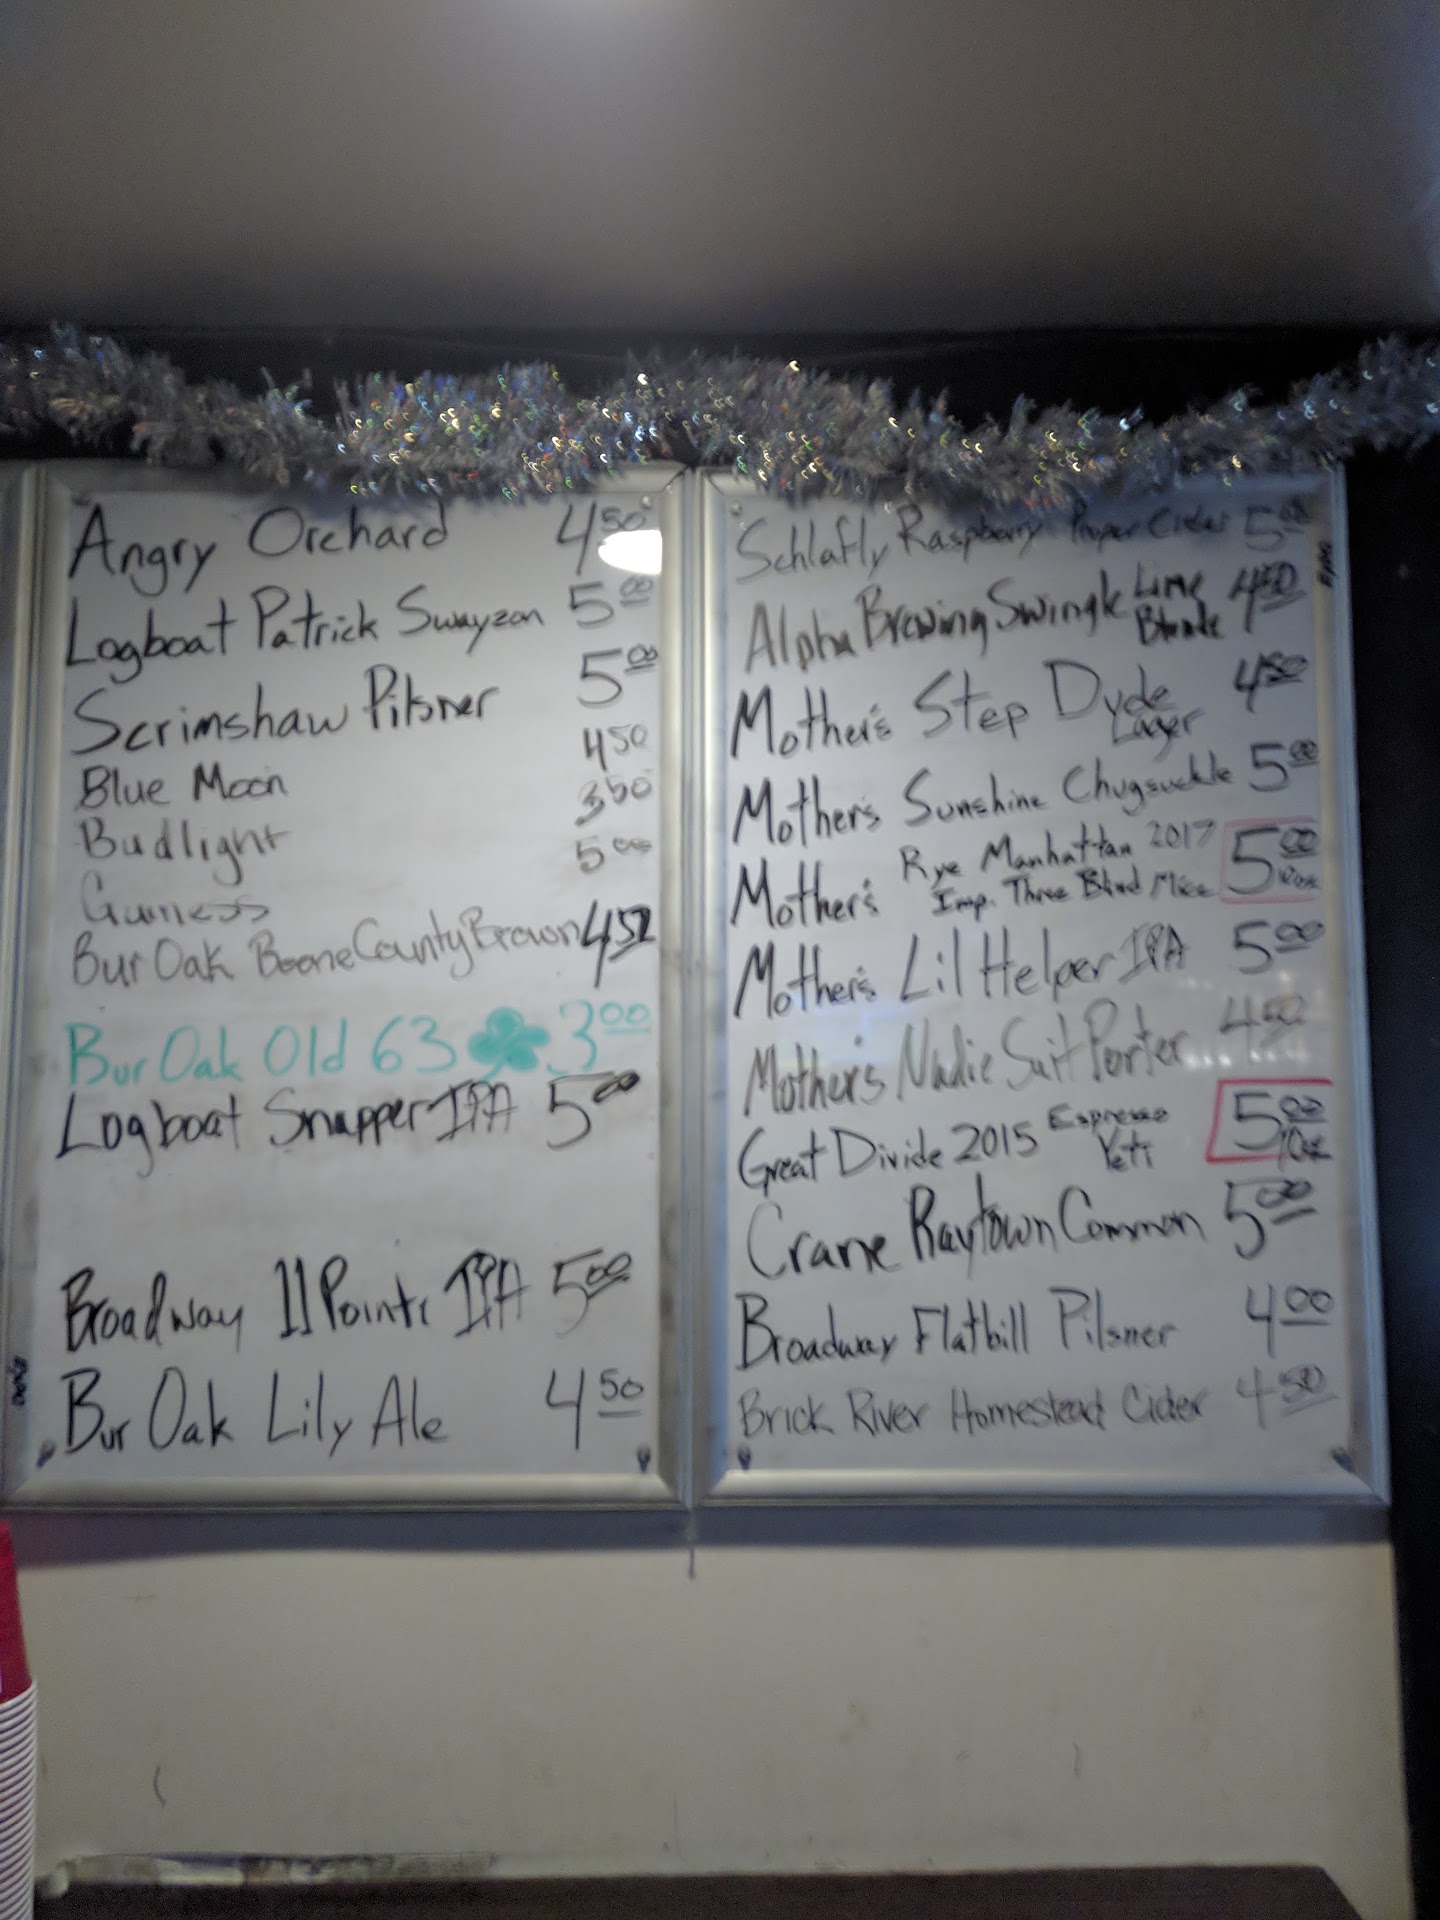 Angry Orchard 4 50
Logboat Patrick Swayzon 5 00
Scrimshaw Pilsner 5 00
Blue Moon 4 50
Budlight 3 50
Guiness 5 00
Bur Oak Boone County Brown 4 50
Bur Oak Old 63 3 00
Logboat Snapper IPA 5 00
Broadway 11 Points IPA 5 00
Bur Oak Lily Ale 4 50
Schlafly Raspberry Proper Cider 5 00
Alpha Brewing Swingle Lime Blonde 4 50
Mother's Step Dyde Lager 4 50
Mother's Sunshine Chugsuckle 5 00
Mother's Rye Manhattan 2017 5 00
Imp. Three Blind Mice 10oz
Mother's Lil Helper IPA 5 00
Mother's Nudie Suit Porter 4 50
Great Divide 2015 Espresso Yeti 5 00 10oz
Crane Raytown Common 5 00
Broadway Flatbill Pilsner 4 00
Brick River Homestead Cider 4 50